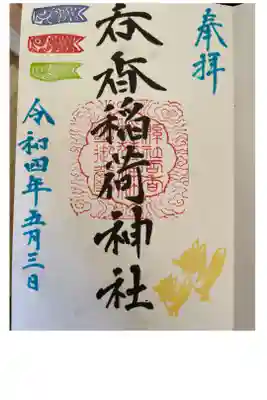 奉拝
呑香稲荷神社
令和四年五月三日